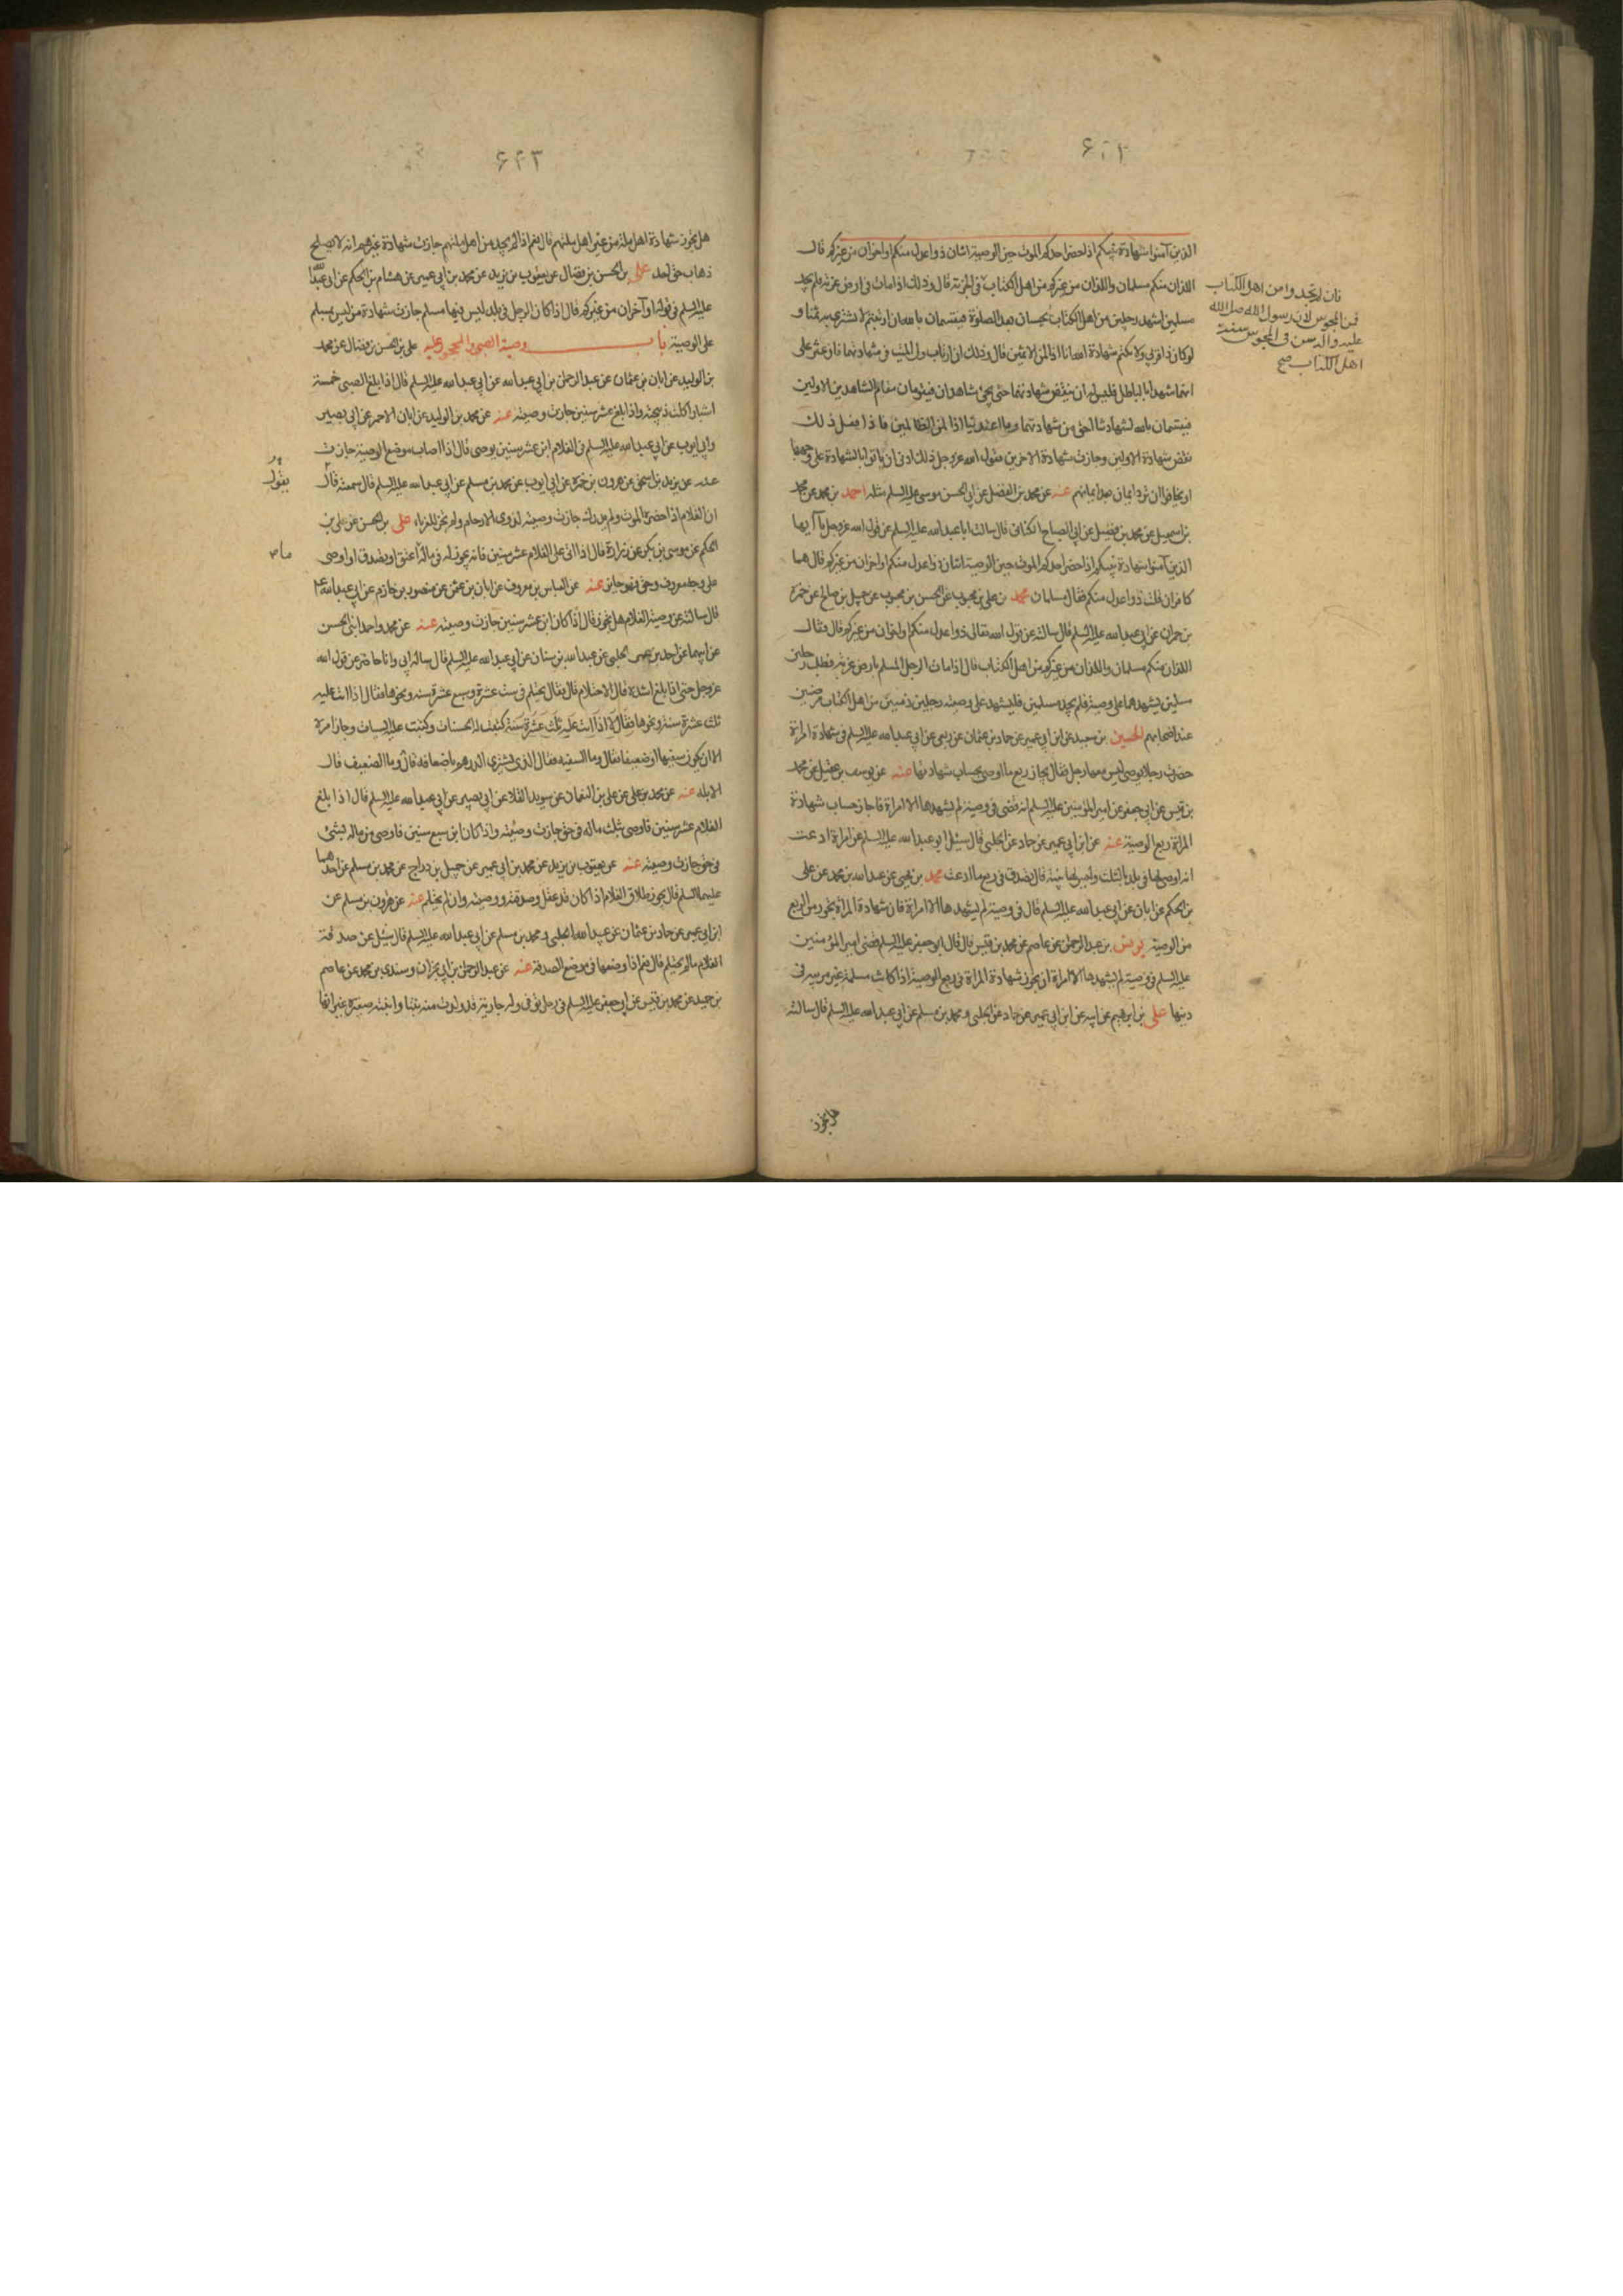 ٦٢٢
الذين آمنوا شهادة بينكم اذا حضر احدكم الموت حين الوصية اثنان ذوا عدل منكم او اخران من غيركم قال
اللذان منكم مسلمان واللذان من غيركم من اهل الكتاب قال وذلك اذا مات في ارض غربة فلم يجد
مسلمين اشهد رجلين من اهل الكتاب يحبسان بعد الصلوة فيقسمان بالله ان ارتبتم لا نشتري به ثمنا و
لو كان ذا قربى ولا نكتم شهادة الله انا اذا لمن الاثمين قال وذلك ان ارتاب ولي الميت في شهادتهما فان عثر على
انهما شهدا بالباطل فليس له ان ينقض شهادتهما حتى يجئ شاهدان فيقومان مقام الشاهدين الاولين
فيقسمان بالله لشهادتنا احق من شهادتهما وما اعتدينا انا اذا لمن الظالمين فاذا فعل ذلك
نقض شهادة الاولين وجازت شهادة الاخرين يقول الله عز وجل ذلك ادنى ان ياتوا بالشهادة على وجهها
او يخافوا ان ترد ايمان بعد ايمانهم عنه عن محمد بن الفضل عن ابي الحسن موسى عليه السلم مثله احمد بن محمد عن محمد
بن اسمعيل عن محمد بن فضيل عن ابي الصباح الكناني قال سالت ابا عبد الله عليه السلم عن قول الله عز وجل يا ايها
الذين آمنوا شهادة بينكم اذا حضر احدكم الموت حين الوصية اثنان ذوا عدل منكم او اخران من غيركم قال هما
كافران قلت ذوا عدل منكم فقال مسلمان محمد بن علي بن محبوب عن الحسن بن محبوب عن جميل بن صالح عن حمزة
بن حمران عن ابي عبد الله عليه السلم قال سالته عن قول الله تعالى ذوا عدل منكم او اخران من غيركم قال فقال
اللذان منكم مسلمان واللذان من غيركم من اهل الكتاب قال اذا مات الرجل المسلم بارض غربة فطلب رجلين
مسلمين يشهدهما على وصيته فلم يجد مسلمين فليشهد على وصيته رجلين ذميين من اهل الكتاب مرضيين
عند اصحابهم الحسين بن سعيد عن ابن ابي عمير عن حماد بن عثمان عن ربعي عن ابي عبد الله عليه السلم في شهادة امراة
حضرت رجلا يوصي ليس معها رجل فقال يجاز ربع ما اوصى بحساب شهادتها عنه عن يوسف بن عقيل عن محمد
بن قيس عن ابي جعفر عن امير المؤمنين عليه السلم انه قضى في وصية لم يشهدها الا امراة فاجاز حساب شهادة
المراة ربع الوصية عنه عن ابن ابي عمير عن حماد عن الحلبي قال سئل ابو عبد الله عليه السلم عن امراة ادعت
انه اوصى لها في بلد بالثلث وليس لها بينة قال تصدق في ربع ما ادعت محمد بن يحيى عن عبد الله بن محمد عن علي
بن الحكم عن ابان عن ابي عبد الله عليه السلم قال في وصية لم يشهدها الا امراة فان شهادة المراة تجوز من الربع
من الوصية يونس بن عبد الرحمن عن عاصم عن محمد بن قيس قال قال ابو جعفر عليه السلم قضى امير المؤمنين
عليه السلم في وصية لم يشهدها الا امراة ان يجوز شهادة المراة في ربع الوصية اذا كانت مسلمة غير مريبة في
دينها علي بن ابرهيم عن ابيه عن ابن ابي عمير عن حماد عن الحلبي ومحمد بن مسلم عن ابي عبد الله عليه السلم قال سالته
هل تجوز
فان لم تجدوا من اهل الكتاب
فمن المجوس لان رسول الله صلى الله
عليه وآله سن في المجوس سنة
اهل الكتاب صح
٦٢٣
هل تجوز شهادة اهل ملة من غير اهل ملتهم قال نعم اذا لم يجد من اهل ملتهم جازت شهادة غيرهم انه لا يصلح
ذهاب حق احد علي بن الحسن بن فضال عن يعقوب بن يزيد عن محمد بن ابي عمير عن هشام بن الحكم عن ابي عبد الله
عليه السلم في قوله او آخران من غيركم قال اذا كان الرجل في بلد ليس فيها مسلم جازت شهادة من ليس بمسلم
على الوصية باب وصية الصبي والمحجور عليه علي بن الحسن بن فضال عن محمد
بن الوليد عن ابان بن عثمان عن عبد الرحمن بن ابي عبد الله عن ابي عبد الله عليه السلم قال اذا بلغ الصبي خمسة
اشبار اكلت ذبيحته واذا بلغ عشر سنين جازت وصيته عنه عن محمد بن الوليد عن ابان الاحمر عن ابي بصير
وابي ايوب عن ابي عبد الله عليه السلم في الغلام ابن عشر سنين يوصي قال اذا اصاب موضع الوصية جازت
عنه عن يزيد بن اسحق عن هرون بن حمزة عن ابي ايوب عن محمد بن مسلم عن ابي عبد الله عليه السلم قال سمعته قال
ان الغلام اذا حضره الموت ولم يدرك جازت وصيته لذوي الارحام ولم تجز للغرباء علي بن الحسن عن علي بن
الحكم عن موسى بن بكر عن زرارة قال اذا اتى على الغلام عشر سنين فانه يجوز له في ماله ما اعتق او تصدق او اوصى
على وجه معروف وحق فهو جايز عنه عن العباس بن معروف عن ابان بن عثمن عن منصور بن حازم عن ابي عبد الله ع
قال سالته عن وصية الغلام هل تجوز قال اذا كان ابن عشر سنين جازت وصيته عنه عن محمد واحمد ابني الحسن
عن ابيهما عن احمد بن عمر الحلبي عن عبد الله بن سنان عن ابي عبد الله عليه السلم قال ساله ابي وانا حاضر عن قول الله
عز وجل حتى اذا بلغ اشده قال الاحتلام قال فقال يحتلم في ست عشرة وسبع عشرة سنة ونحوها فقال اذا اتت عليه
ثلث عشرة سنة ونحوها فقال لا اذا اتت عليه ثلث عشرة سنة كتبت له الحسنات وكتبت عليه السيات وجاز امره
الا ان يكون سفيها او ضعيفا فقال وما السفيه فقال الذي يشتري الدرهم باضعافه قال وما الضعيف قال
الابله عنه عن محمد بن علي عن علي بن النعمان عن سويد القلا عن ابي بصير عن ابي عبد الله عليه السلم قال اذا بلغ
الغلام عشر سنين فاوصى بثلث ماله في حق جازت وصيته واذا كان ابن سبع سنين فاوصى من ماله بشئ
في حق جازت وصيته عنه عن يعقوب بن يزيد عن محمد بن ابي عمير عن جميل بن دراج عن محمد بن مسلم عن احدهما
عليهما السلم قال يجوز طلاق الغلام اذا كان قد عقل وصدقته ووصيته وان لم يحتلم عنه عن هرون بن مسلم عن
ابن ابي عمير عن حماد بن عثمان عن عبيد الله الحلبي ومحمد بن مسلم عن ابي عبد الله عليه السلم قال سئل عن صدقة
الغلام ما لم يحتلم قال نعم اذا وضعها في موضع الصدقة عنه عن عبد الرحمن بن ابي نجران وسندي بن محمد عن عاصم
بن حميد عن محمد بن قيس عن ابي جعفر عليه السلم في رجل توفي وله جارية قد ولدت منه بنتا وابنته صغيرة غير انها
يقول